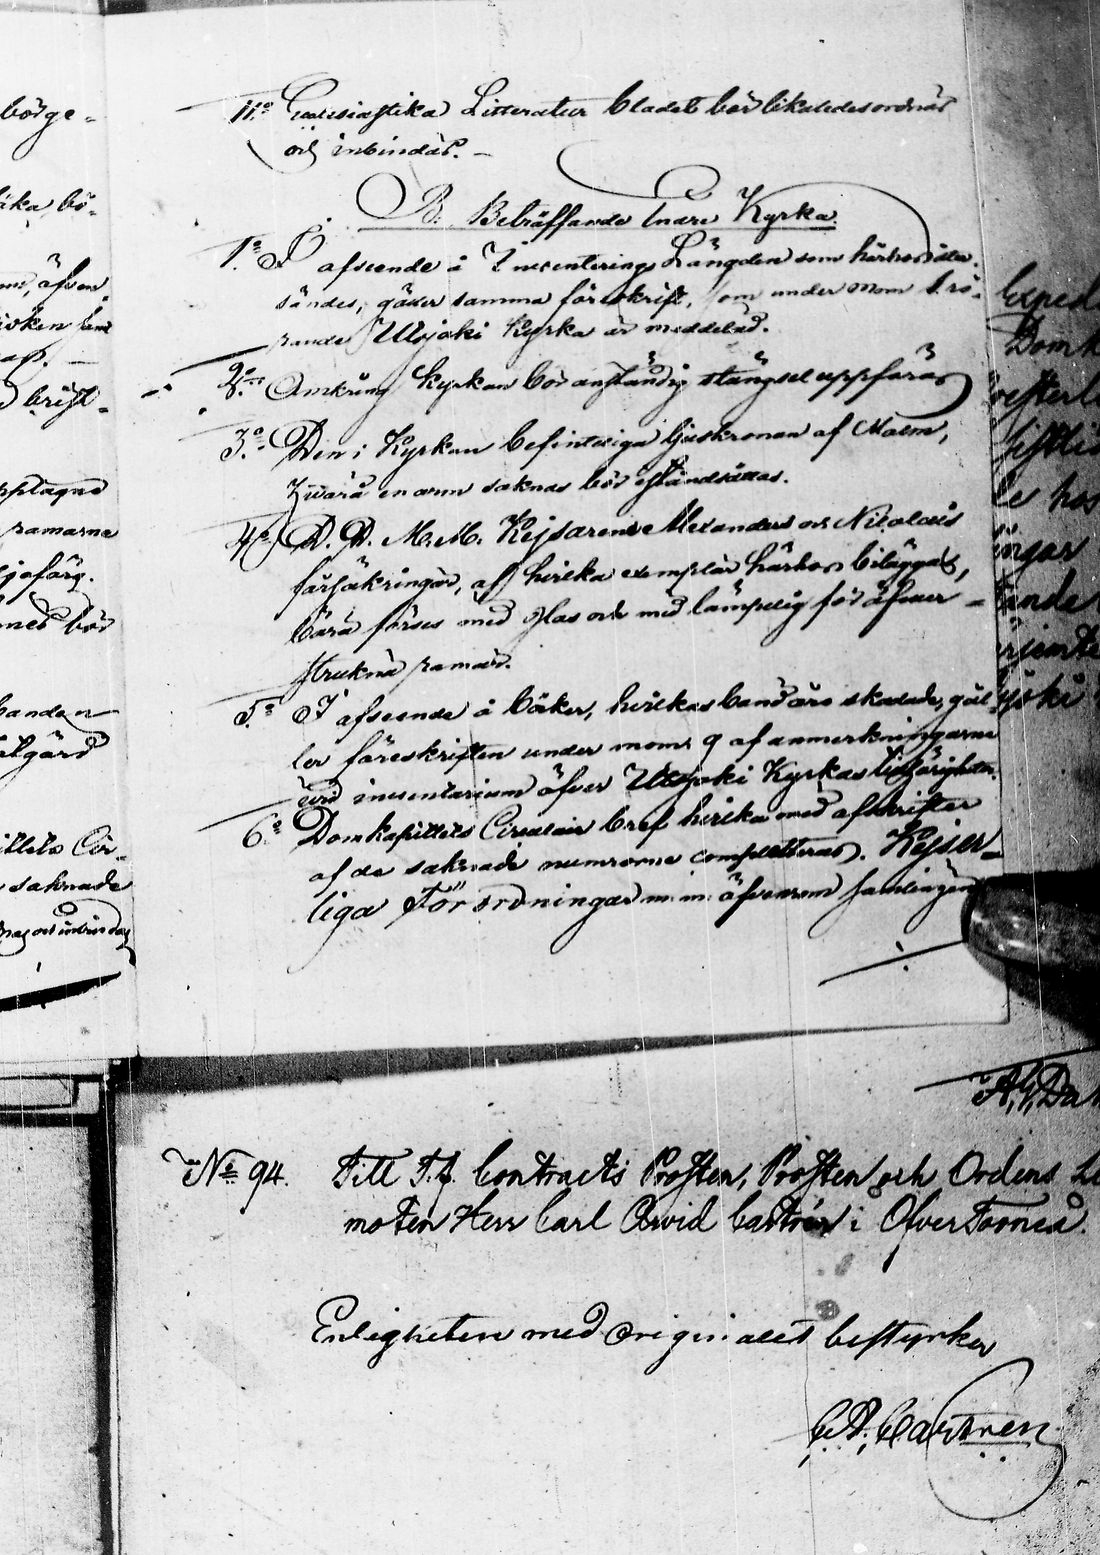 11:o Ecclesiastika Litteratur bladet bör likaledes ordnas
och inbindas. –
B. Beträffande Enare Kyrka.
1:o I afseende å Inventerings Längden som härhos åter
sändes, gäller samma föreskrift, som under mom 1 rö-
rande Utsjoki Kyrka är meddelad.
2:o Omkring Kyrkan bör anständig stängsel uppföras
3:o Den i Kyrkan befintliga ljuskronan af Malm,
hvarå en arm saknas bör iståndsättas.
4:o D. D. M. M. Kejsarene Alexanders och Nicolais
försäkringar, af hvilka exemplar härhos biläggas,
böra förses med glas och med lämplig för öfver-
strukna ramar.
5:o I afseende å böcker, hvilkas band äro skadade, gäl-
ler föreskriften under mom: 9 af anmerkningarne
vid inventarium öfver Utsjoki Kyrkas tillhörigheter.
6:o Domkapitlets Circulair bref hvilka med afskrifter
af de saknade numrorne completteras. Kejser-
liga Förordningar m: m: äfvensom samlingen
börge-
bö-
äfven
brist-
upptagne
ramarne
oljefärg.
bör
banden
Cir-
saknade
Exped
Domk
hos
ande
No 94. Till T. f. Contracts Prosten, Prosten och Ordens Le
moten Herr Carl Arvid Castrén i Öfver Torneå.
Enligheten med originalet bestyrker
C. A. Castren